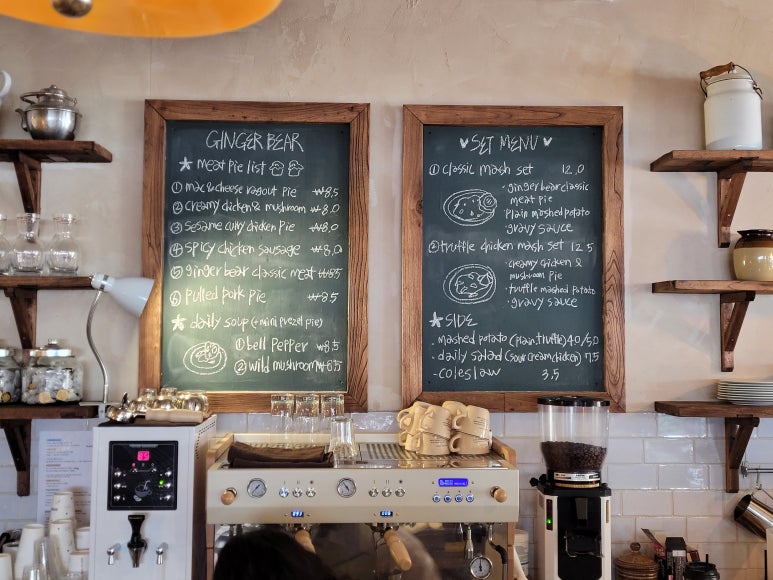 GINGER BEAR
meat pie list
① mac & cheese ragout pie ₩8.5
② creamy chicken & mushroom ₩8.0
③ sesame curry chicken pie ₩8.0
④ spicy chicken sausage ₩8.0
⑤ ginger bear classic meat ₩8.5
⑥ pulled pork pie ₩8.5
daily soup (+ mini prezel pie)
① bell pepper ₩8.5
② wild mushroom ₩8.5
SET MENU
① classic mash set 12.0
· ginger bear classic
meat pie
· plain mashed potato
· gravy sauce
② truffle chicken mash set 12.5
· creamy chicken &
mushroom pie
· truffle mashed potato
· gravy sauce
SIDE
- mashed potato (plain, truffle) 4.0/5.0
- daily salad (sour cream chicken) 7.5
- coleslaw 3.5